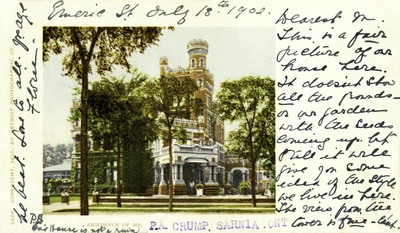 Emeric St July 18th 1902.
Dearest M.
This is a fair
picture of our
house here.
It doesn't show
all the grounds
or our garden
with the seeds
coming up. but
still it will
give you some
idea of the style
we live in here.
The view from the
tower is fine
be best. Love to all. 
PS
our House is not a ruin
A RESIDENCE OF
P.A. CRUMP. SARNIA. ONT
COPYRIGHT, BY DETROIT PHOTOGRAPHIC CO.